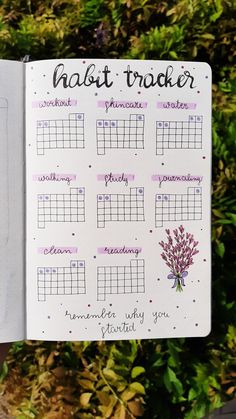 habit tracker
workout skincare water
walking study journaling
clean reading
remember why you
started